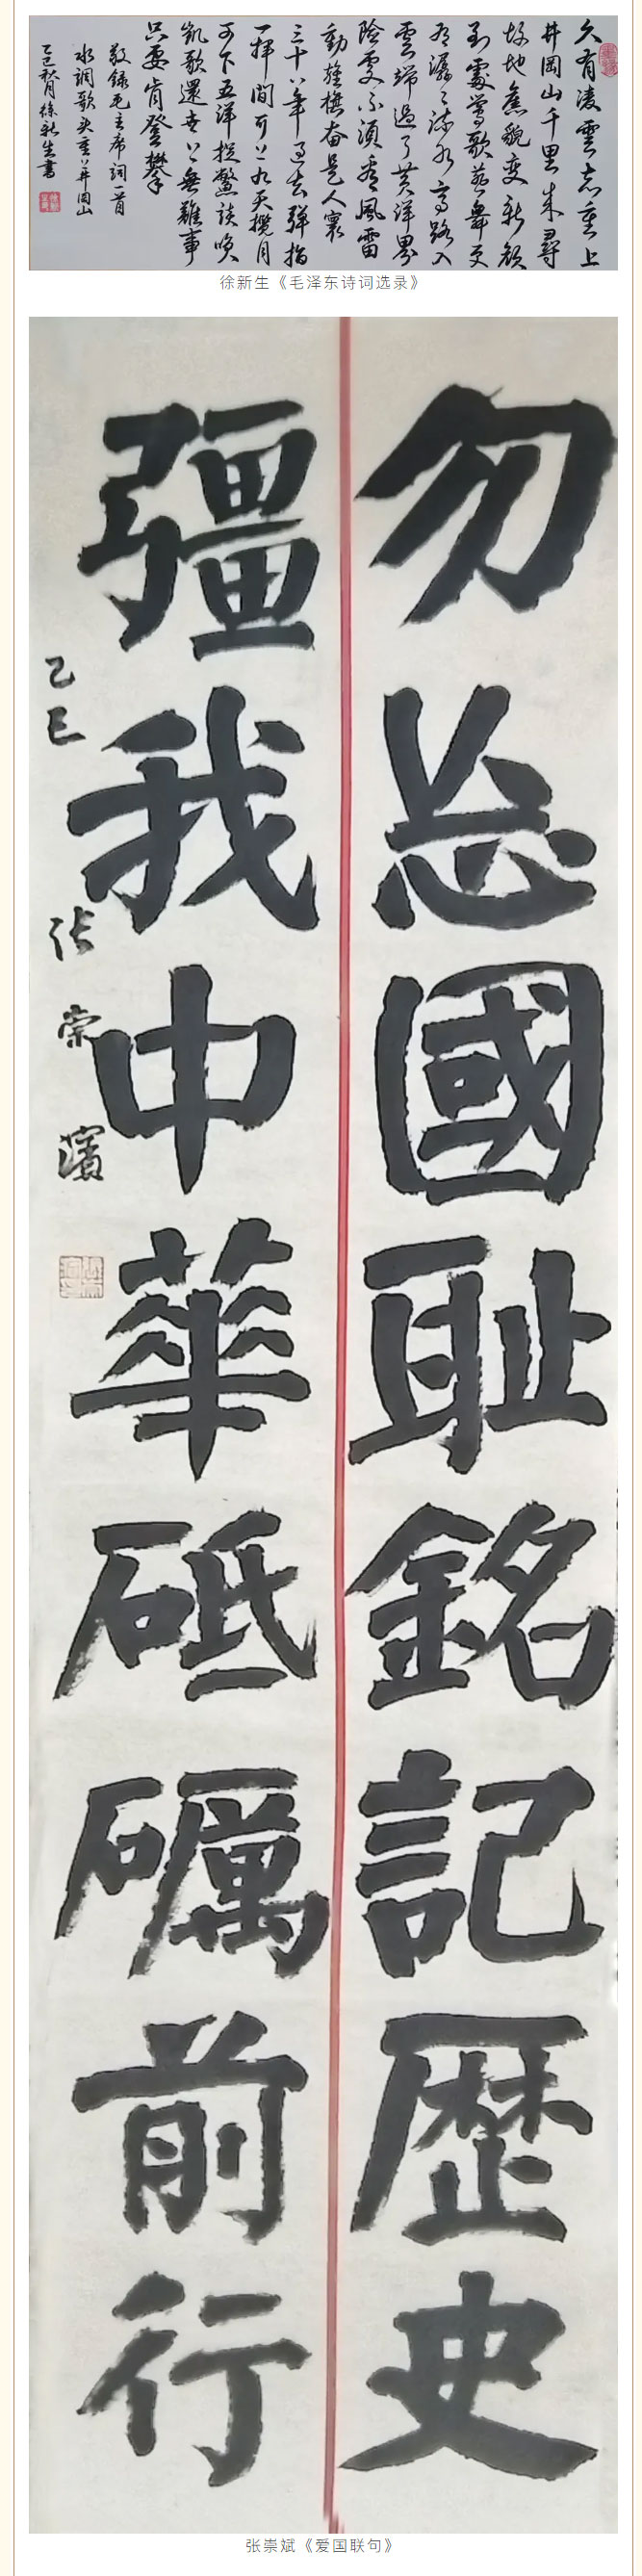 久有凌雲志重上
井岡山千里来尋
故地舊貌變新顔
到處鶯歌燕舞更
有潺〻流水高路入
雲端過了黄洋界
險處不須看風雷
動旌旗奋是人寰
三十八年過去彈指
一揮間可上九天攬月
可下五洋捉鱉談笑
凱歌還世上無難事
只要肯登攀
敬録毛主席詞一首
水調歌头重上井岡山
乙巳秋月徐新生書
徐新生《毛泽东诗词选录》
勿忘國耻銘記歴史
彊我中華砥礪前行
乙巳 张崇濱
张崇斌《爱国联句》